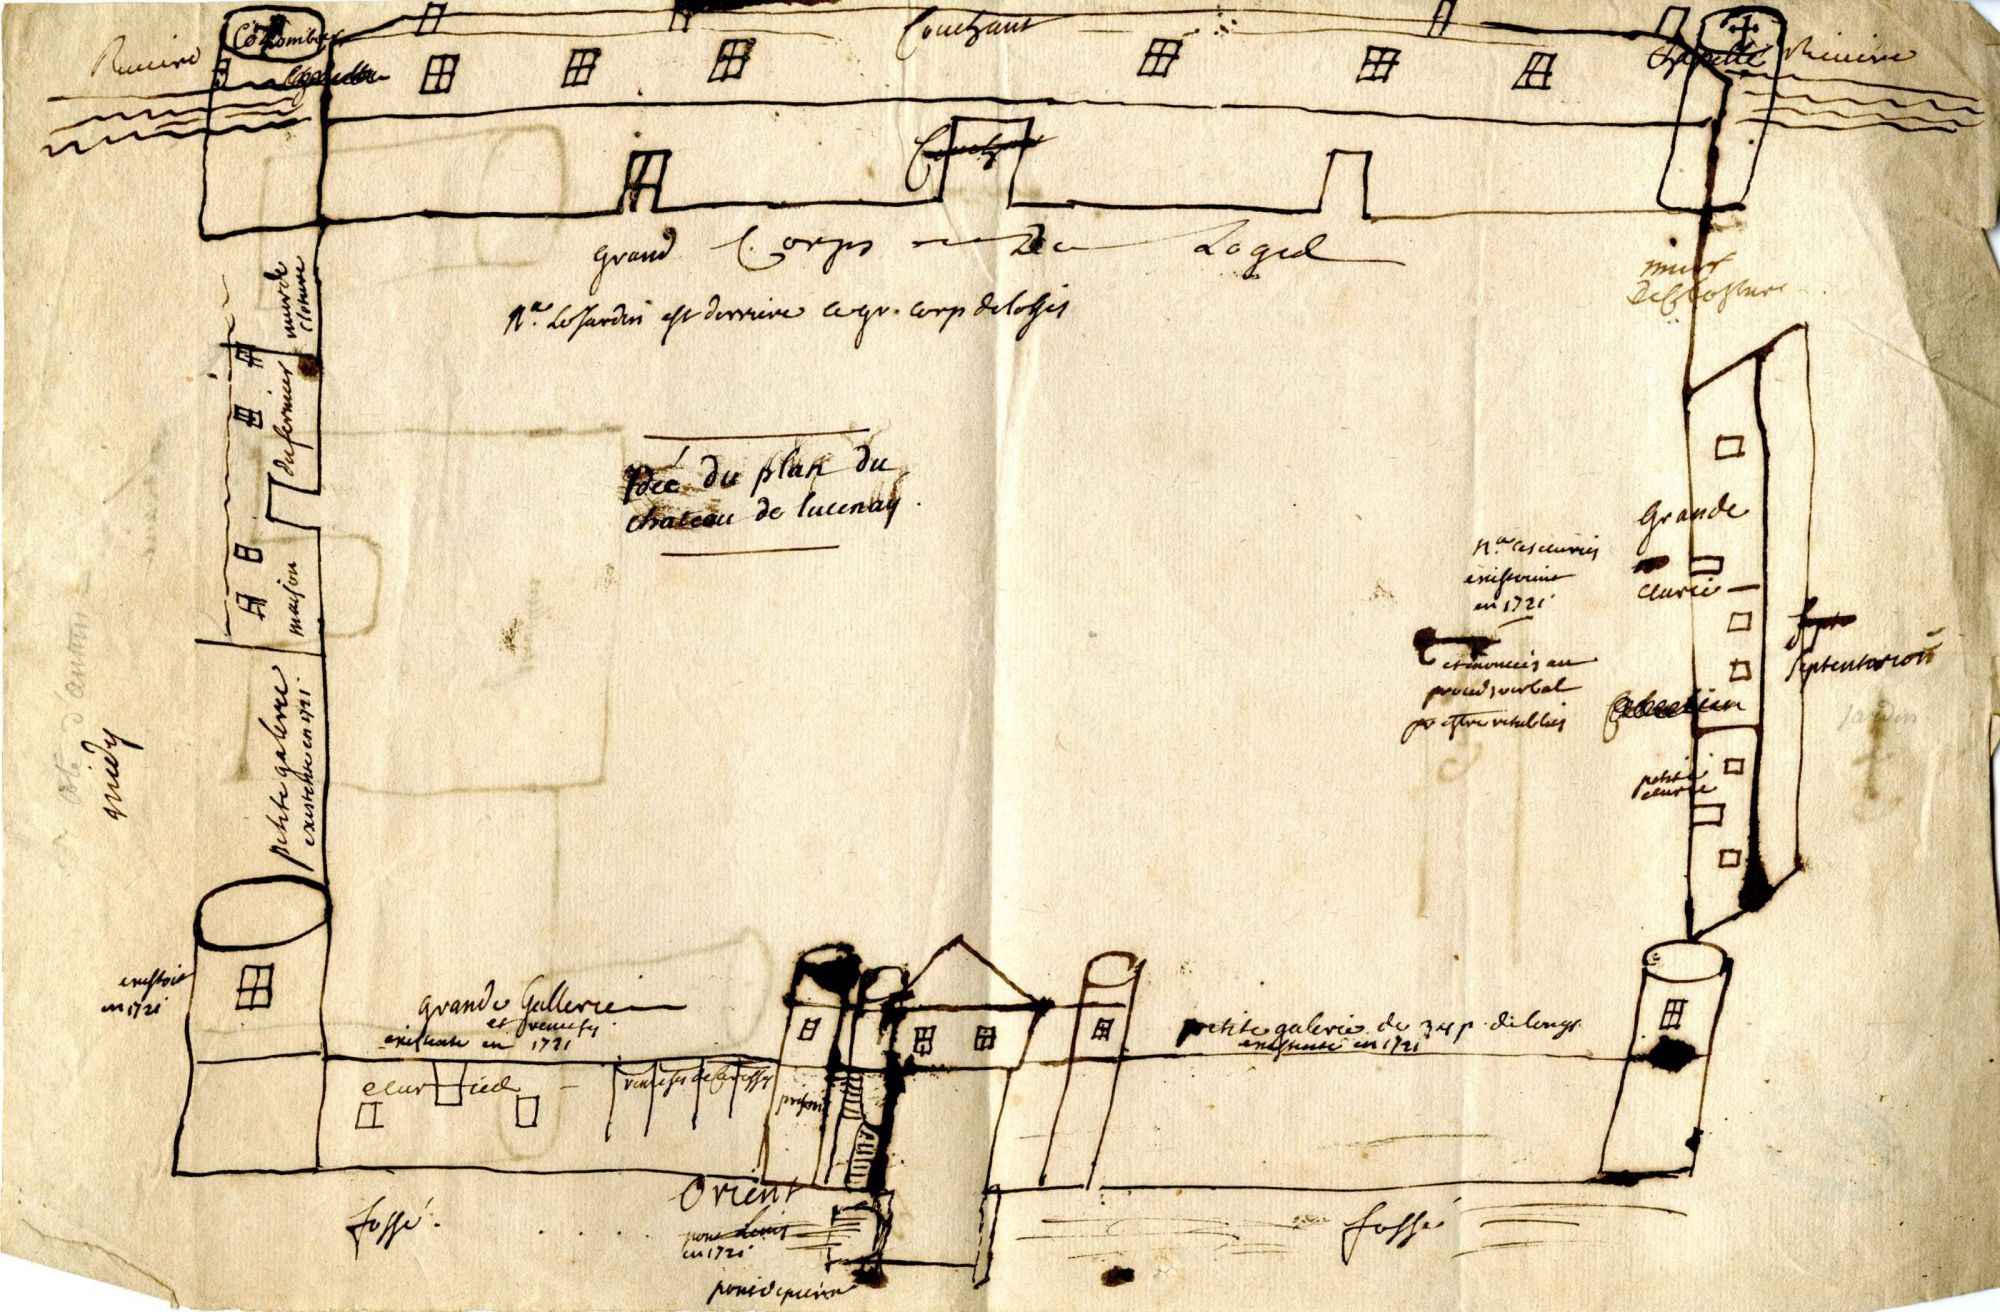 Riviere
Colombier
Couchant
Chapelle
Riviere
Couchant
grand Corps de Logis
Na. Le Jardin est derriere ce gr. corp de logis
murs
de Closture
mur de
cloture
du fermier
maison
petite galerie
existente en 1721
midy
coté d'autun
Idée du plan du
chateau de lucenay.
Na. ces ecuries
existoient
en 1721
et enoncées au
proces verbal
pr estre retablies
Grande
ecurie
petite
ecurie
Septentrion
Jardin
existoit
en 1721
grande Gallerie
et remises
existente en 1721
ecurie
remises de Carosses
prison
petite galerie de 34 p. de longr
existente en 1721
fossé.
Orient
pont levis
en 1721
pont de pierre
fossé